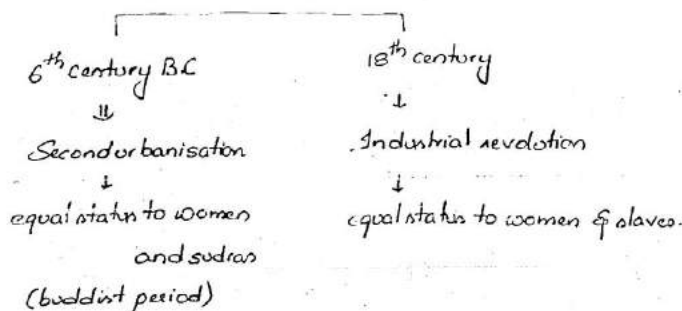 6th century B.C
Second urbanisation
equal status to women
and sudras
(buddist period)
18th century
Industrial revolution
equal status to women & slaves.